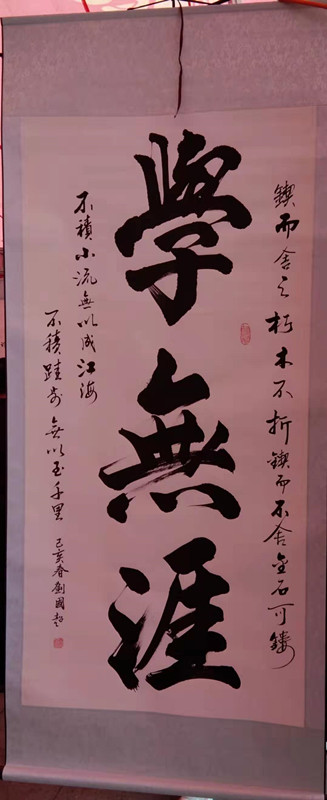 鍥而舍之朽木不折鍥而不舍金石可鏤
學無涯
不積小流無以成江海
不積跬步無以至千里 己亥春劉國超